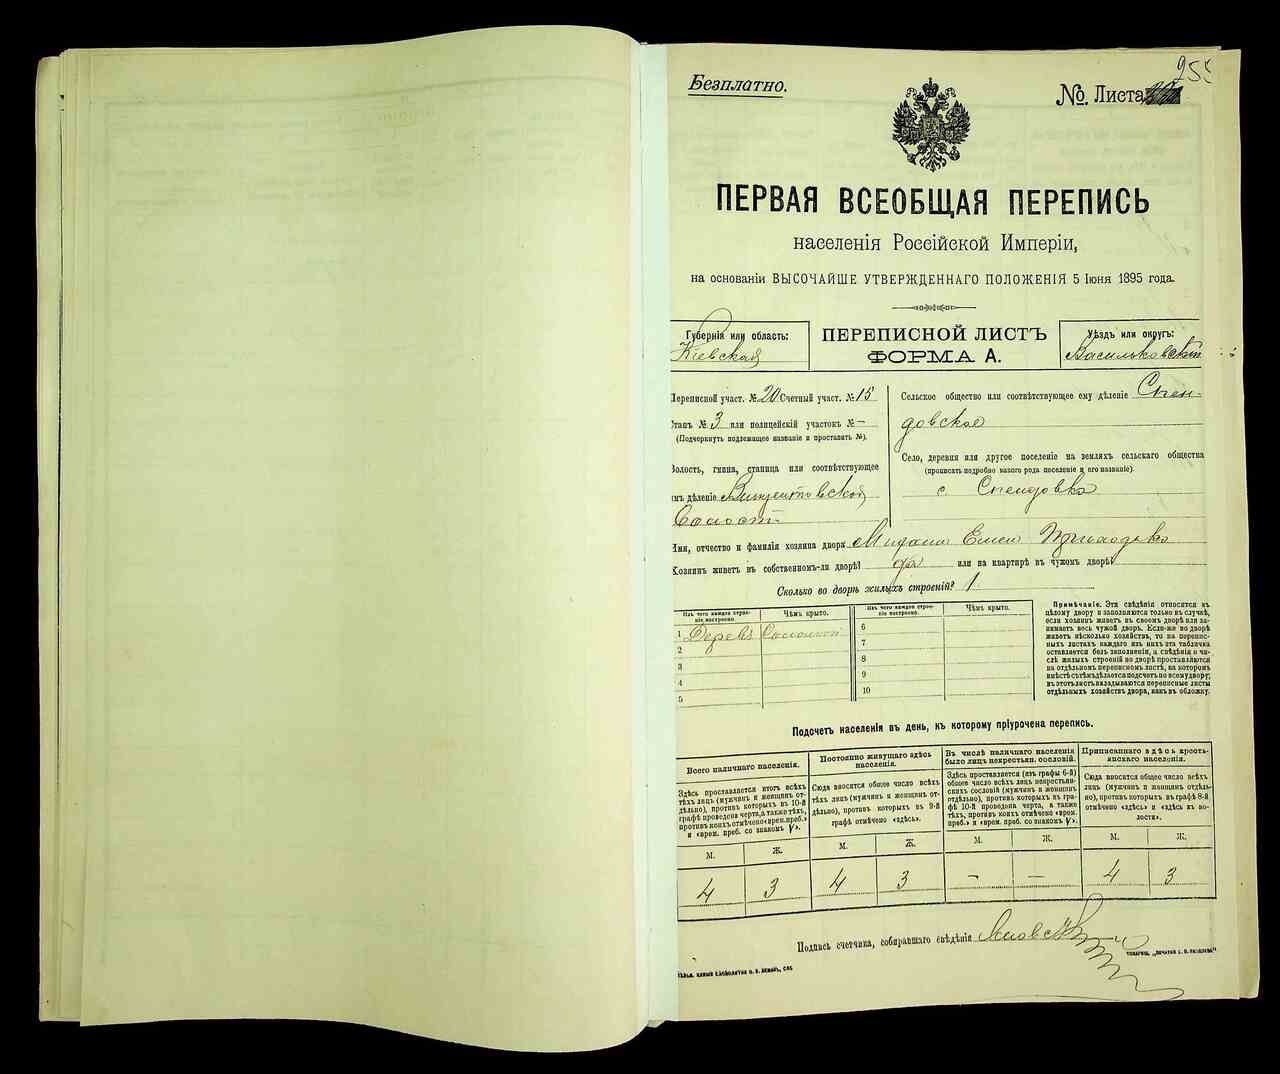 255
Безплатно.
№. Листа
ПЕРВАЯ ВСЕОБЩАЯ ПЕРЕПИСЬ
населенія Россійской Имперіи,
на основаніи ВЫСОЧАЙШЕ УТВЕРЖДЕННАГО ПОЛОЖЕНІЯ 5 Іюня 1895 года.
Губернія или область:
Кіевская
ПЕРЕПИСНОЙ ЛИСТЪ
ФОРМА А.
Уѣздъ или округъ:
Васильковскій
Переписной участ. № 20 Счетный участ. № 15
Станъ № 3 или полицейскій участокъ № —
(Подчеркнуть подлежащее названіе и проставить №).
Волость, гмина, станица или соотвѣтствующее
имъ дѣленіе Винцентовской
Волости
Сельское общество или соотвѣтствующее ему дѣленіе Спен-
довское
Село, деревня или другое поселеніе на земляхъ сельскаго общества
(прописать подробно какого рода поселеніе и его названіе).
с. Спендовка
Имя, отчество и фамилія хозяина двора
Хозяинъ живетъ въ собственномъ-ли дворѣ? да или на квартирѣ въ чужомъ дворѣ?
Сколько во дворѣ жилыхъ строеній? 1
Изъ чего каждое строе-
ніе построено.
Чѣмъ крыто.
1 Дерев. Соломой
2
3
4
5
Изъ чего каждое строе-
ніе построено.
Чѣмъ крыто.
6
7
8
9
10
Примѣчаніе. Эти свѣдѣнія относятся къ
цѣлому двору и заполняются только въ случаѣ,
если хозяинъ живетъ въ своемъ дворѣ или за-
нимаетъ весь чужой дворъ. Если-же во дворѣ
живетъ нѣсколько хозяйствъ, то на перепис-
ныхъ листахъ каждаго изъ нихъ эта табличка
оставляется безъ заполненія, а свѣдѣнія о чи-
слѣ жилыхъ строеній во дворѣ проставляются
на отдѣльномъ переписномъ листѣ, на которомъ
вмѣстѣ съ тѣмъ дѣлается подсчетъ по всему двору;
въ этотъ листъ вкладываются переписные листы
отдѣльныхъ хозяйствъ двора, какъ въ обложку.
Подсчетъ населенія въ день, къ которому пріурочена перепись.
Всего наличнаго населенія.
Здѣсь проставляется итогъ всѣхъ
тѣхъ лицъ (мужчинъ и женщинъ от-
дѣльно), противъ которыхъ въ 10-й
графѣ проведена черта, а также тѣхъ,
противъ коихъ отмѣчено «врем. преб.»
и «врем. преб. со знакомъ V».
М. Ж.
4 3
Постоянно живущаго здѣсь
населенія.
Сюда вносятся общее число всѣхъ
тѣхъ лицъ (мужчинъ и женщинъ от-
дѣльно), противъ которыхъ въ 9-й
графѣ отмѣчено «здѣсь».
М. Ж.
4 3
Въ числѣ наличнаго населенія
было лицъ некрестьян. сословій.
Здѣсь проставляется (изъ графы 6-й)
общее число всѣхъ лицъ некрестьян-
скихъ сословій (мужчинъ и женщинъ
отдѣльно), противъ которыхъ въ гра-
фѣ 10-й проведена черта, а также
тѣхъ, противъ коихъ отмѣчено «врем.
преб.» и «врем. преб. со знакомъ V».
М. Ж.
— —
Приписаннаго здѣсь кресть-
янскаго населенія.
Сюда вносятся общее число всѣхъ
лицъ (мужчинъ и женщинъ отдѣль-
но), противъ которыхъ въ графѣ 8-й
отмѣчено «здѣсь» и «здѣсь въ во-
лости».
М. Ж.
4 3
Подпись счетчика, собиравшаго свѣдѣнія